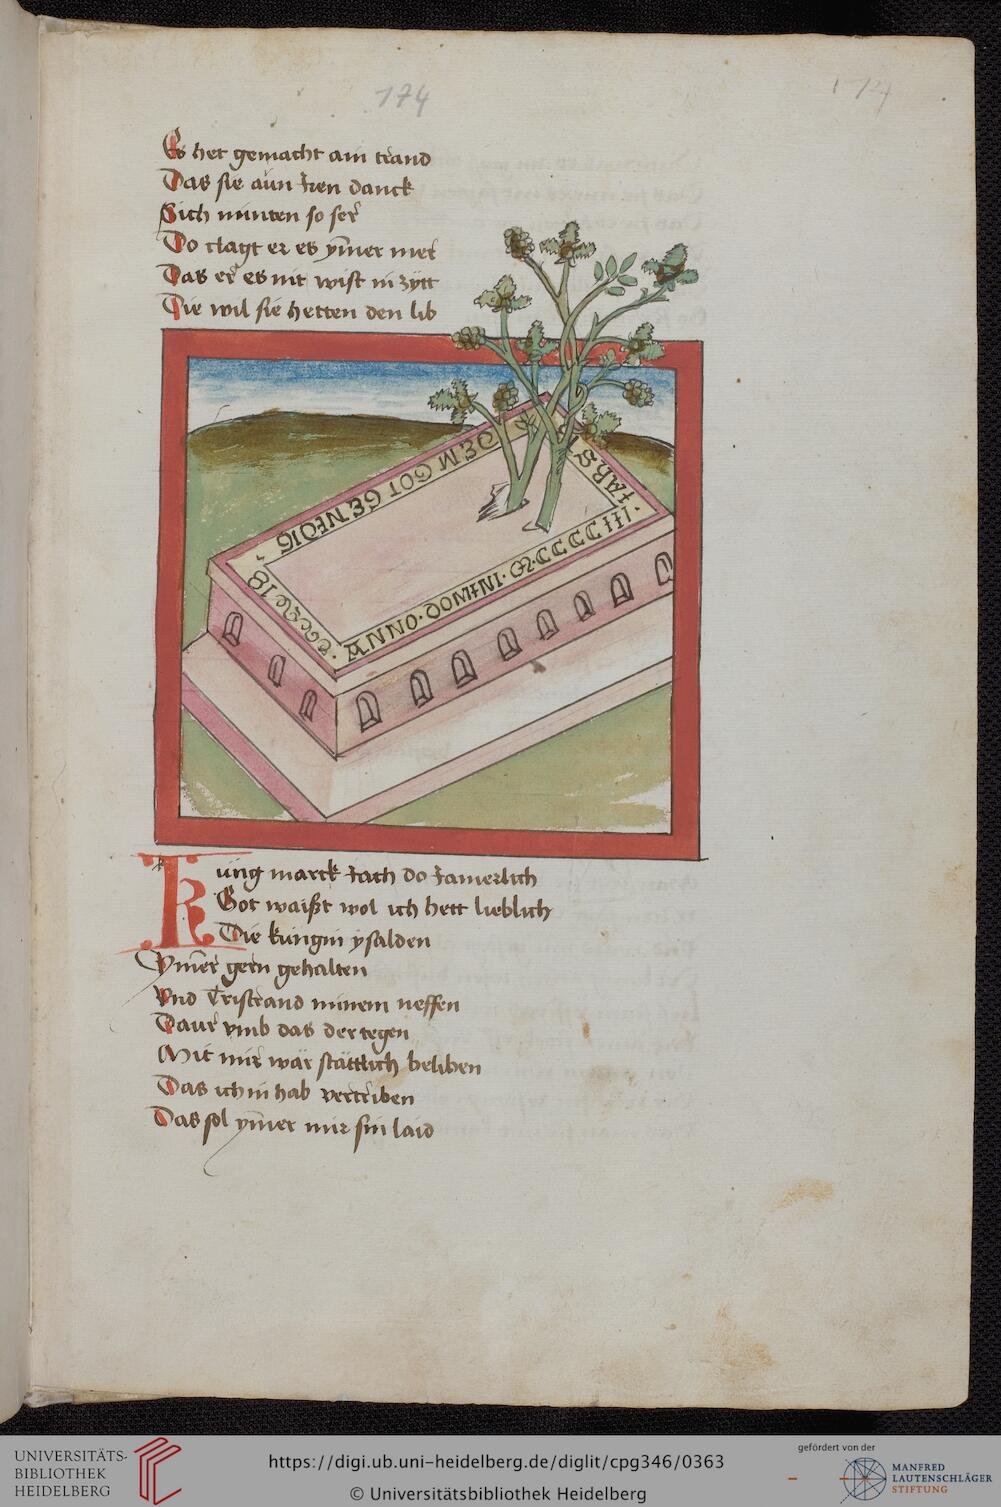 174
174
Es het gemacht ain trand
Das sie aun Iren danck
Sich minten so ser
Do clagt er es ymer mer
Das er es nit wist in zytt
Die wil sie hetten den lib
ANNO · DOMINI · M · CCCCC III ·
IARS
DEM GOT GENEDIG
Kúng marck sach do Jamerlich
Got waißt wol ich hett lieblich
Die kúngin ysalden
Ymer gern gehalten
Vnd Tristrand minem neffen
Daur vmb das der tegen
Mit mir wär stättlich beliben
Das ich in hab vertriben
Das sol ymer mir sin laid
UNIVERSITÄTS-
BIBLIOTHEK
HEIDELBERG
https://digi.ub.uni-heidelberg.de/diglit/cpg346/0363
© Universitätsbibliothek Heidelberg
gefördert von der
MANFRED
LAUTENSCHLÄGER
STIFTUNG